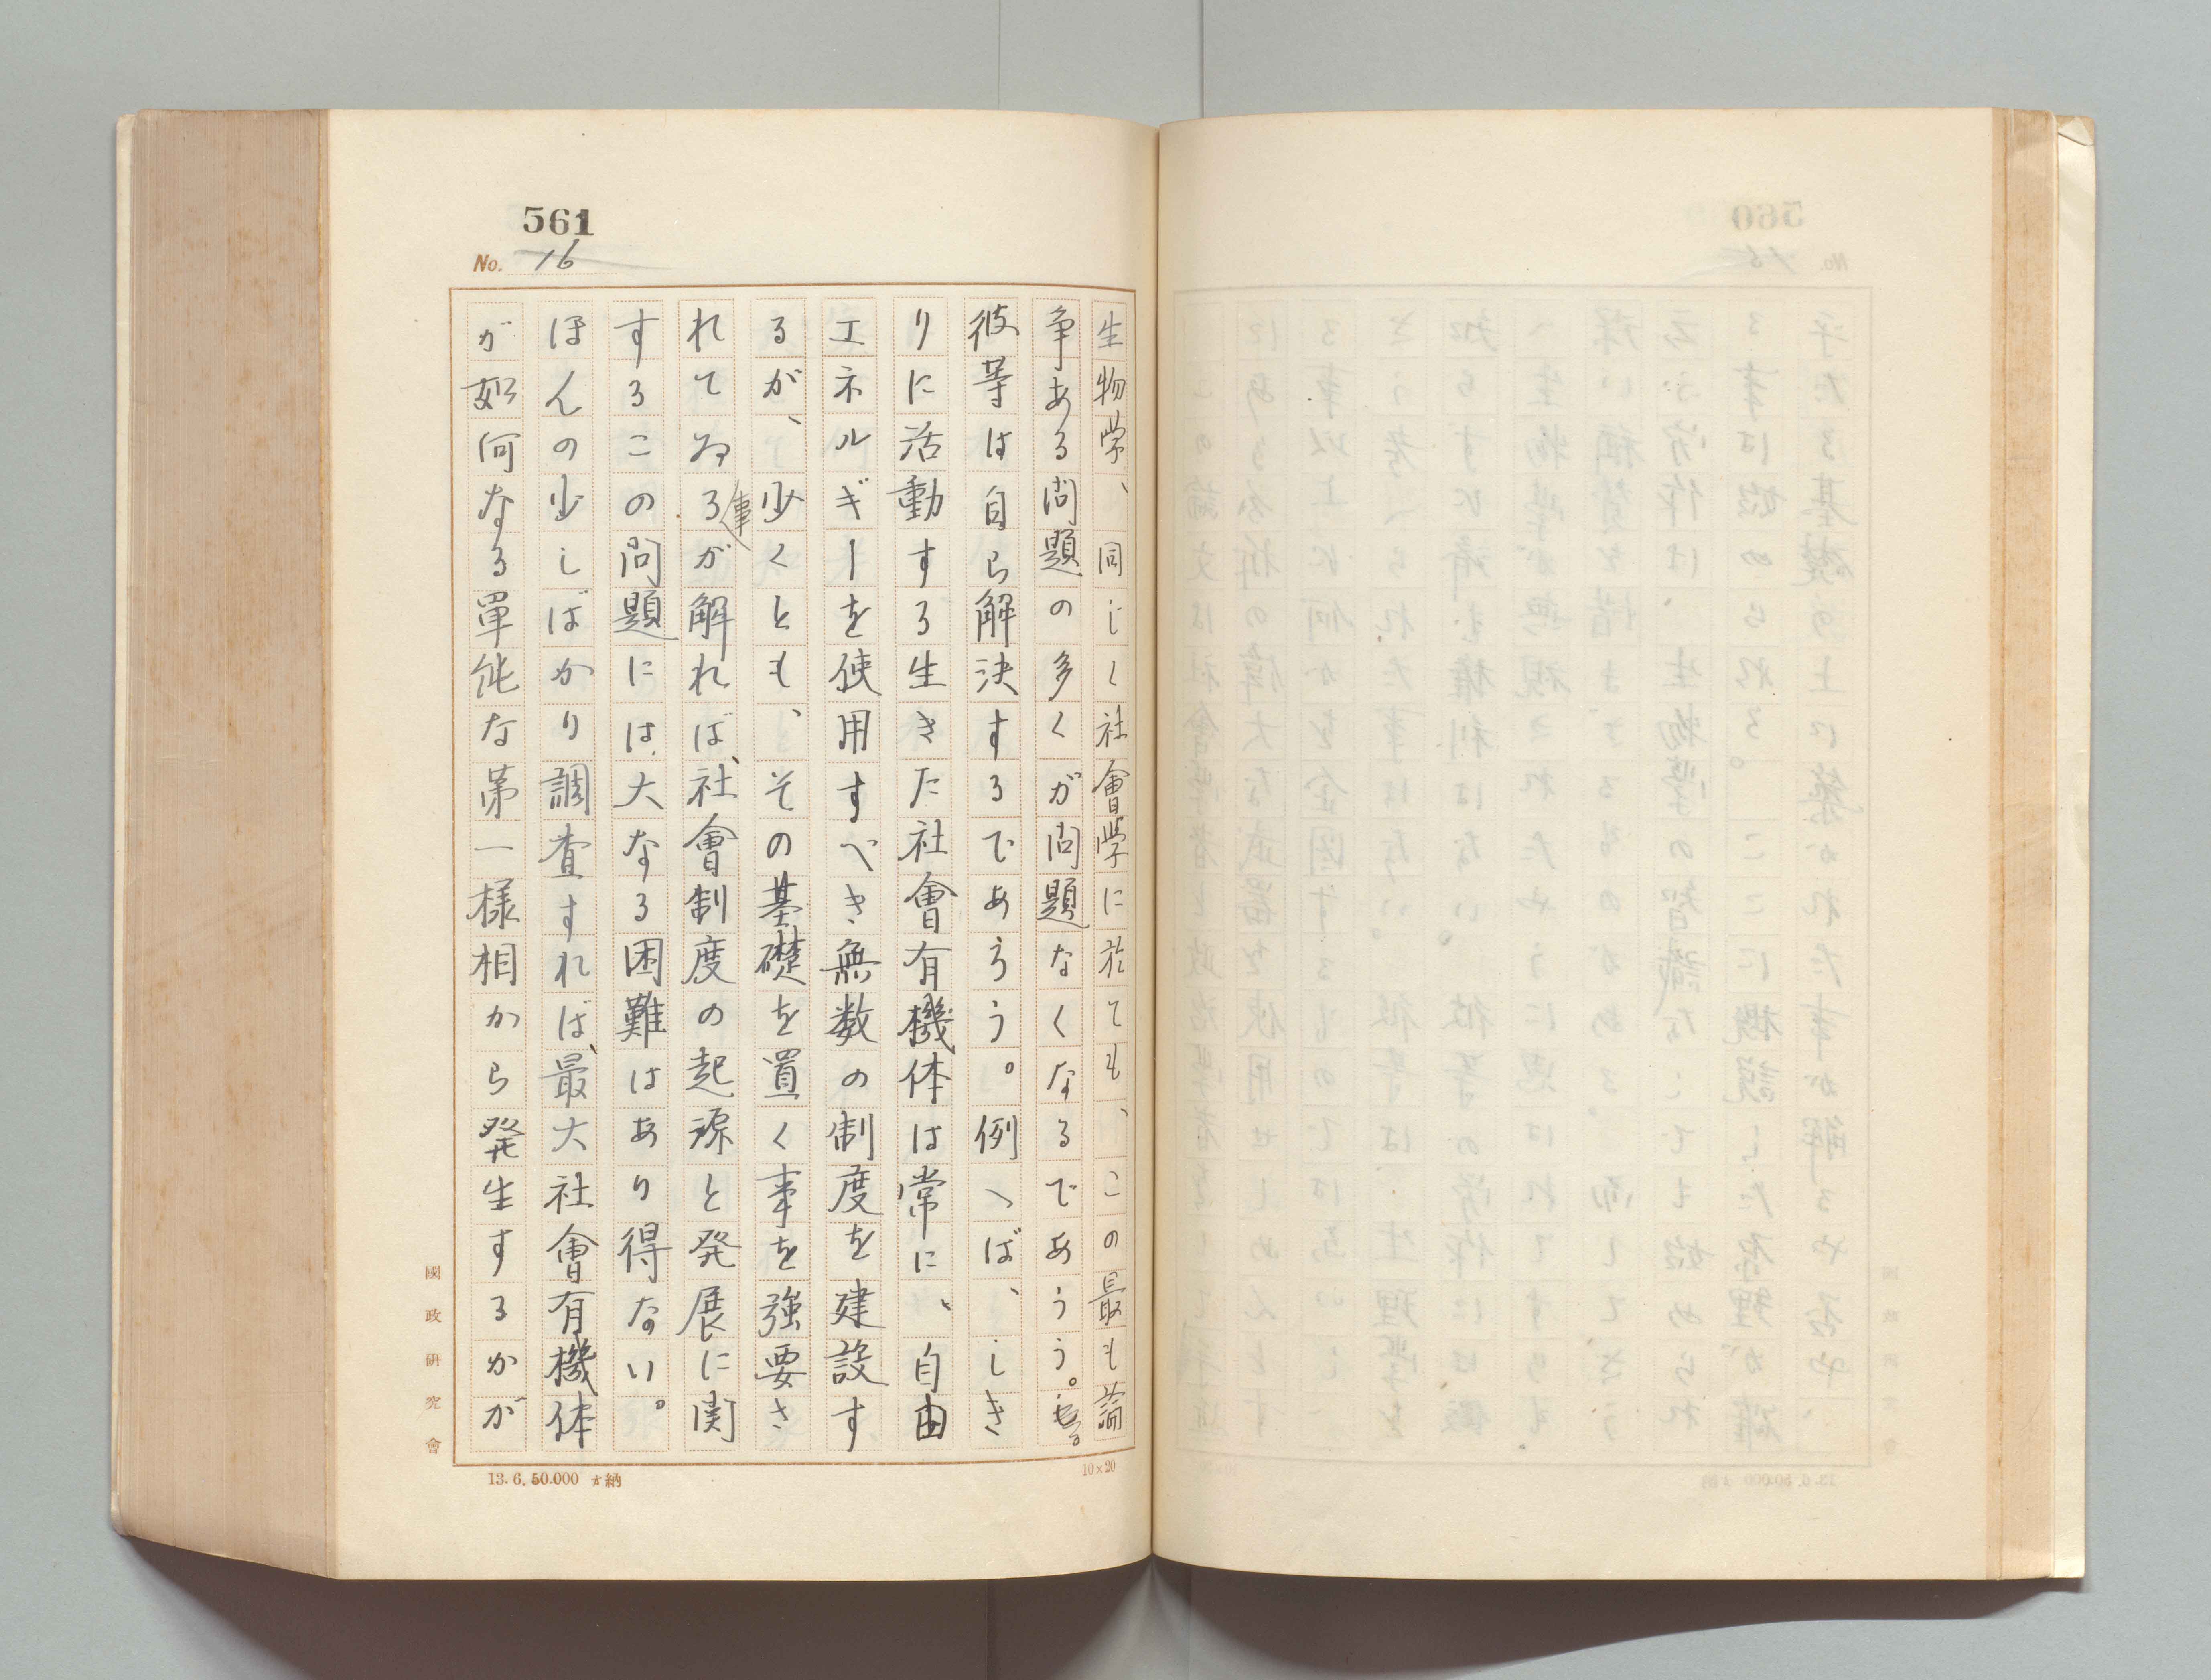 561
No. 16
生物学、同じく社會学に於ても、この最も論
争ある問題の多くが問題なくなるであらう。
彼等は自ら解決するであらう。例へば、しき
りに活動する生きた社會有機体は常に、自由
エネルギーを使用すべき無数の制度を建設す
るが、少くとも、その基礎を置く事を強要さ
れてゐる事が解れば、社會制度の起源と発展に関
するこの問題には大なる困難はあり得ない。
ほんの少しばかり調査すれば、最大社會有機体
が如何なる単純な第一様相から発生するかが
國政研究會
13.6.50.000 納
10×20